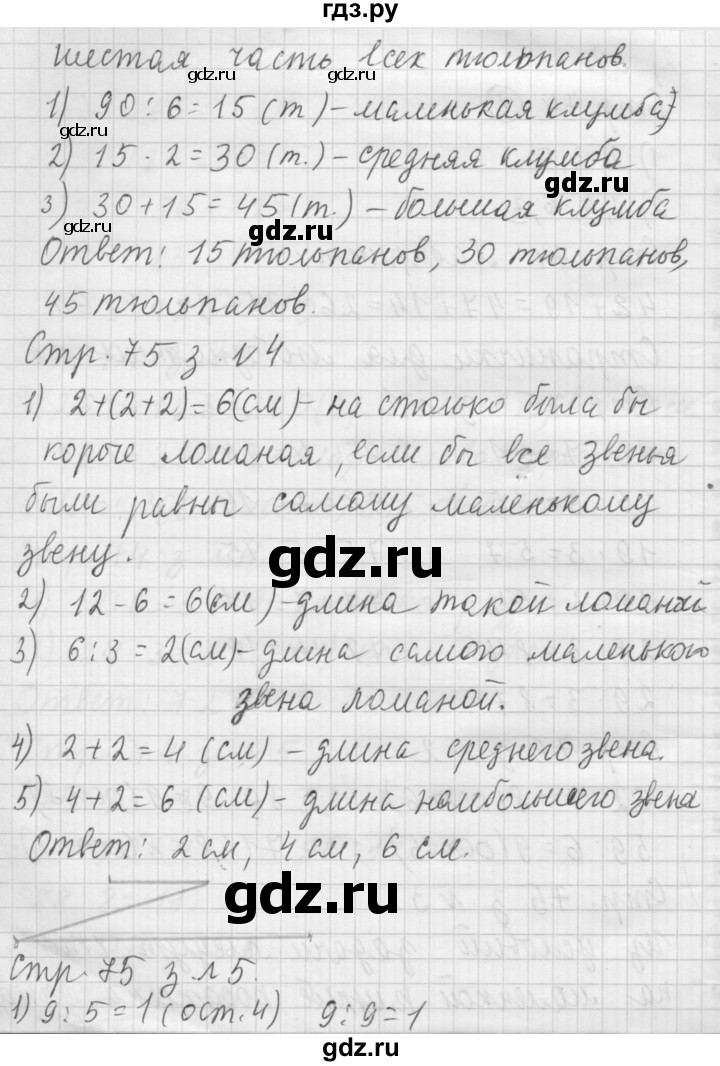 гдз.ру
шестая часть всех тюльпанов.
gdz.ru gdz.ru
1) 90 : 6 = 15 (т.) – маленькая клумба
gdz.ru
2) 15 · 2 = 30 (т.) – средняя клумба
gdz.ru
3) 30 + 15 = 45 (т.) – большая клумба
gdz.ru
Ответ: 15 тюльпанов, 30 тюльпанов,
45 тюльпанов.
Стр. 75 з. №4
1) 2+(2+2)=6(см) – на столько была бы
короче ломаная, если бы все звенья
были равны самому маленькому
звену.
gdz.ru
2) 12 - 6 = 6(см) – длина такой ломаной
3) 6 : 3 = 2(см) – длина самого маленького
звена ломаной.
4) 2 + 2 = 4 (см) – длина среднего звена.
5) 4 + 2 = 6 (см) – длина наибольшего звена
Ответ: 2 см, 4 см, 6 см.
gdz.ru
Стр. 75 з. №5.
1) 9 : 5 = 1 (ост. 4) 9 : 9 = 1
gdz.ru